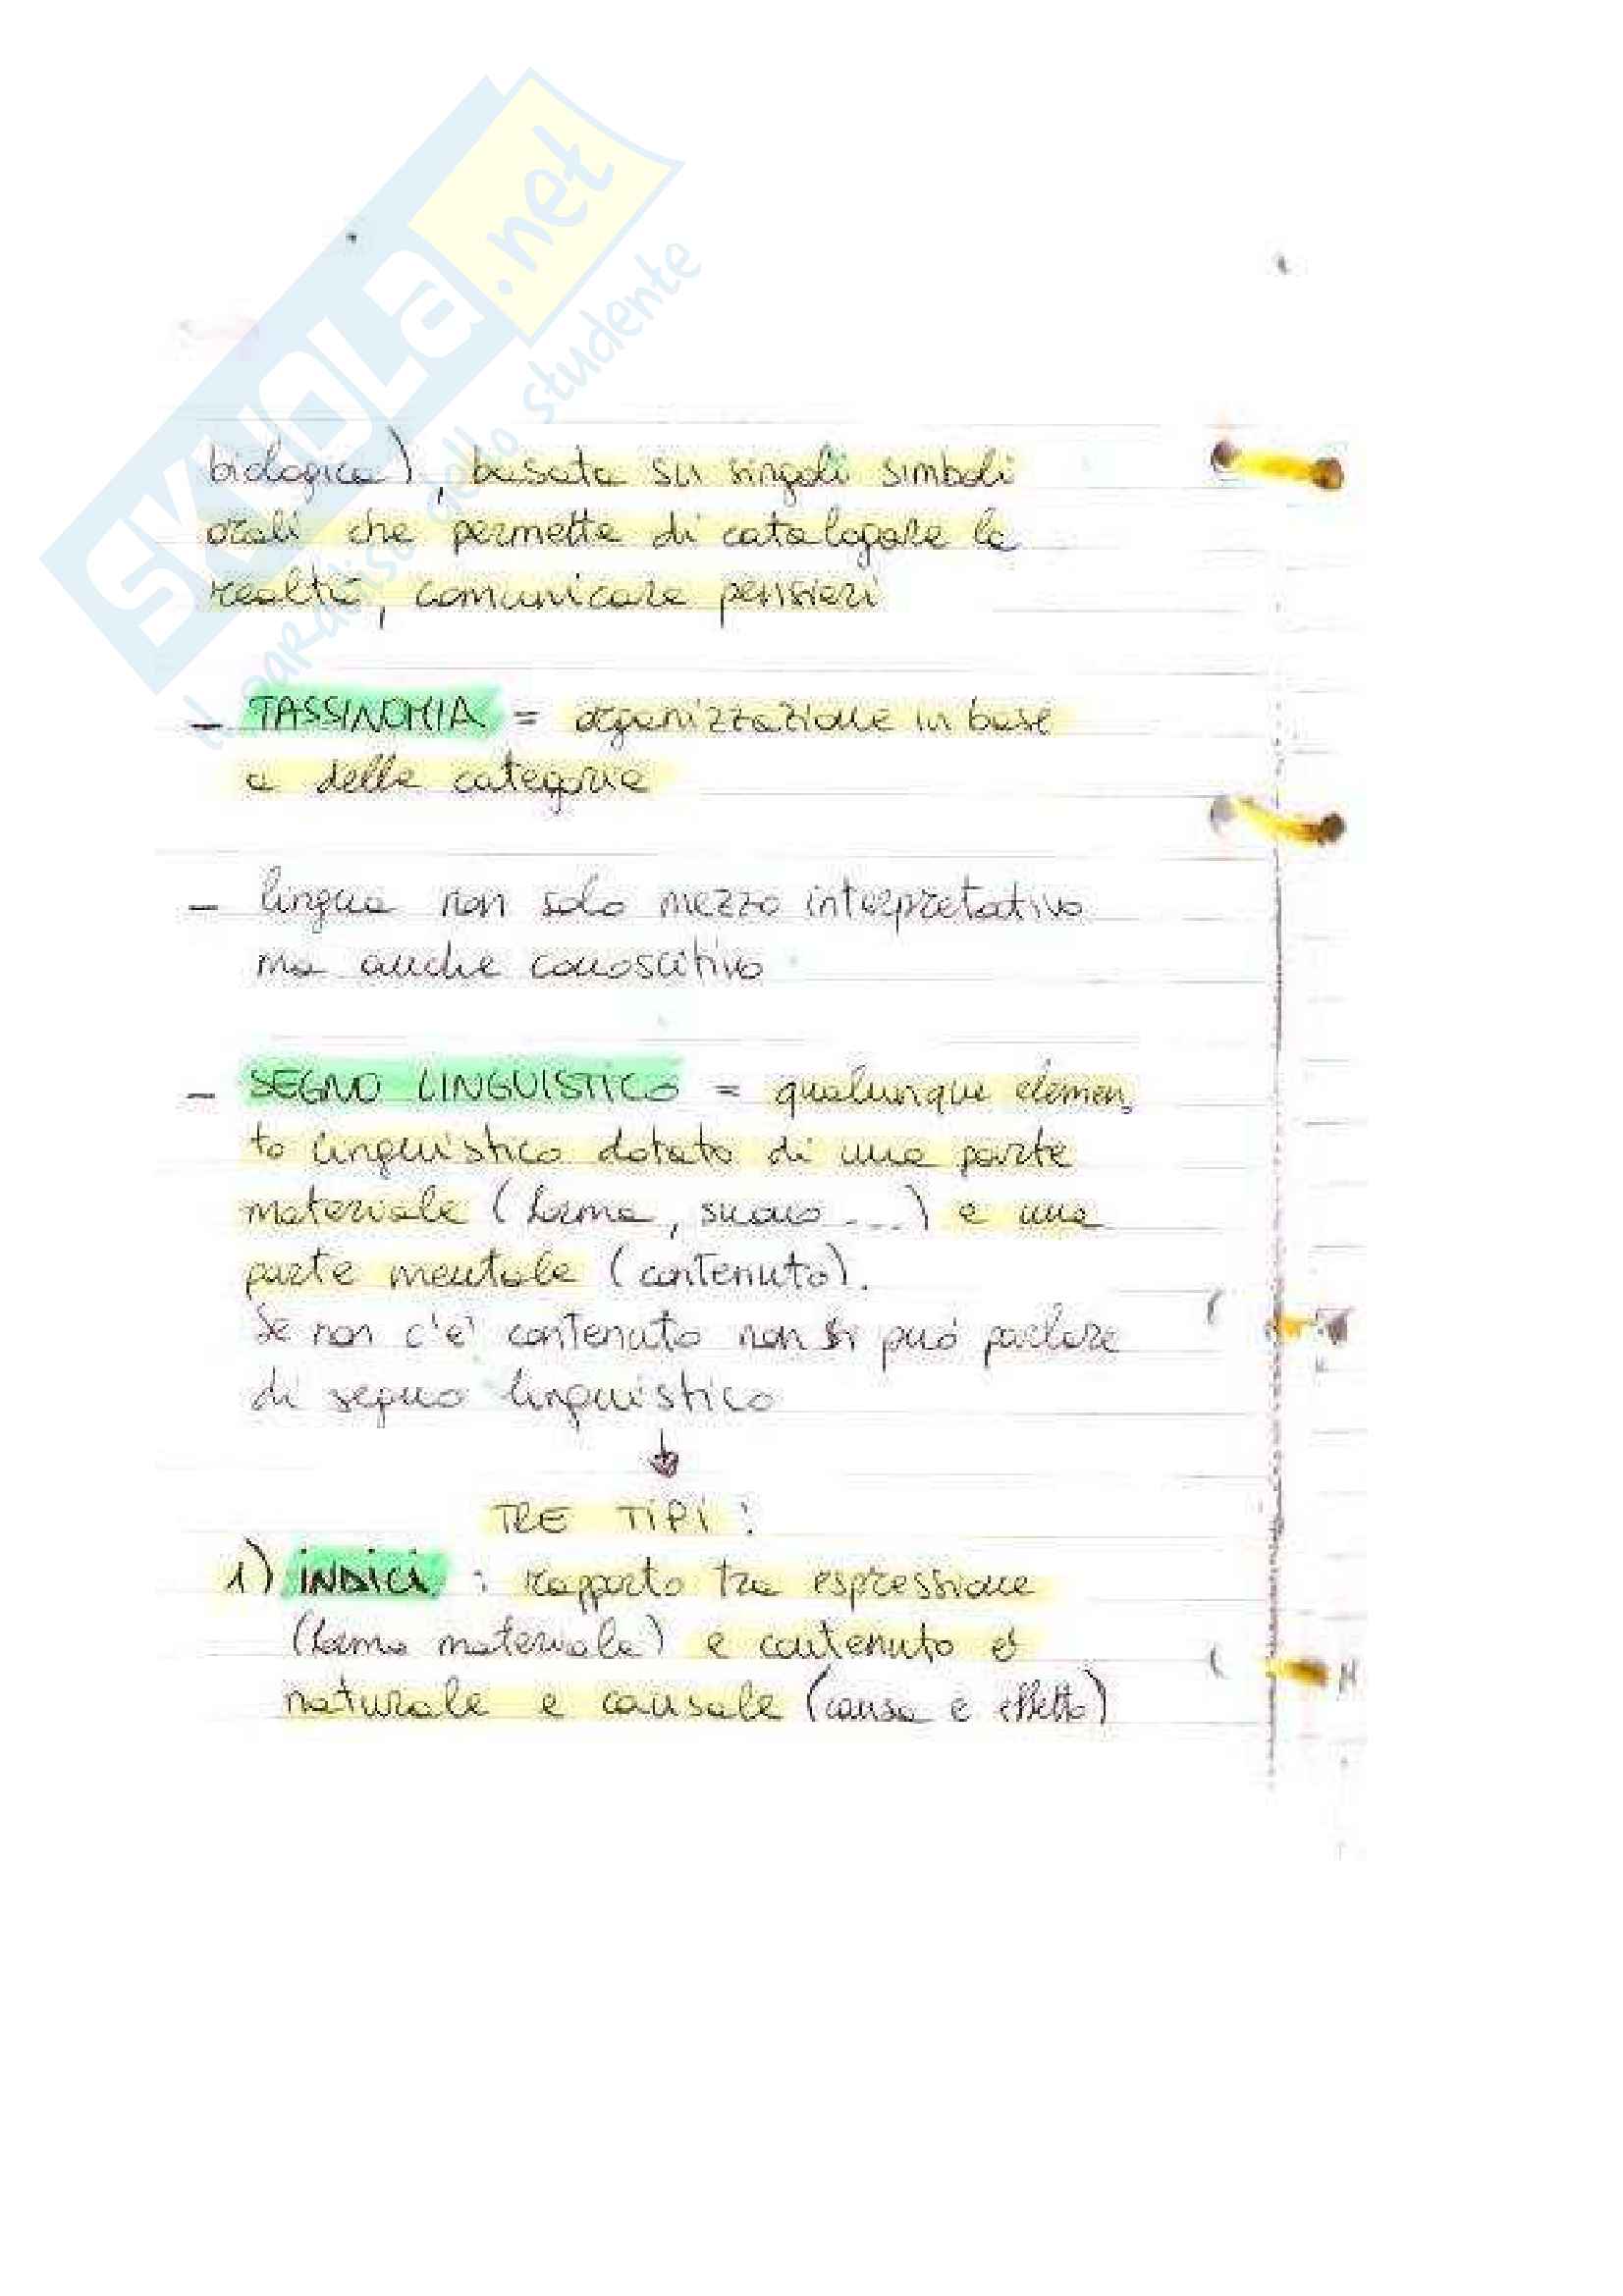 SKUOLA.net
il paradiso dello studente
biologica), basata su singoli simboli
orali che permette di catalogare la
realtà, comunicare pensieri
- TASSINOMIA = organizzazione in base
a delle categorie
- lingua non solo mezzo interpretativo
ma anche conoscitivo
- SEGNO LINGUISTICO = qualunque elemen
to linguistico dotato di una parte
materiale (forma, suono ...) e una
parte mentale (contenuto).
Se non c'è contenuto non si può parlare
di segno linguistico
↓
TRE TIPI :
1) INDICI : rapporto tra espressione
(forma materiale) e contenuto è
naturale e causale (causa e effetto)